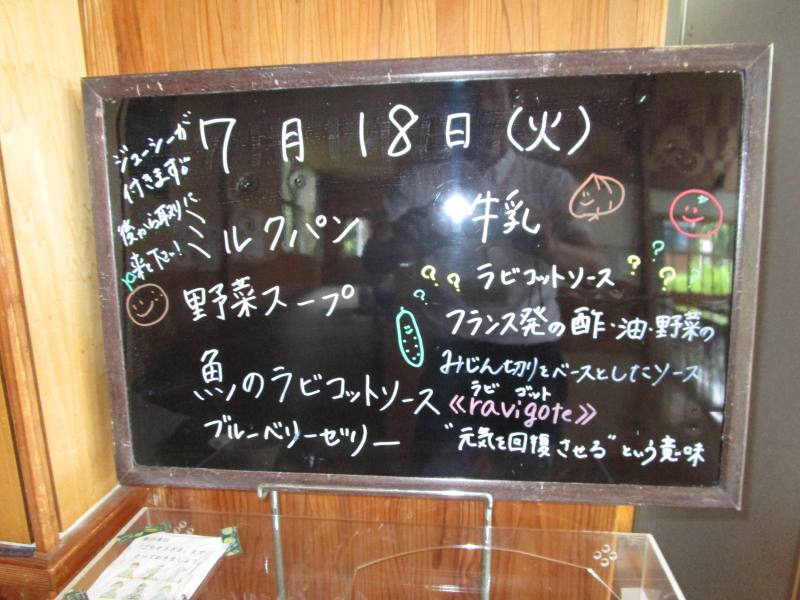 7月18日(火)
ジューシーが
付きます。
後から取りに
来て下さい!
ミルクパン
牛乳
野菜スープ
魚のラビコットソース
ブルーベリーゼリー
? ? ? ラビコットソース ? ? ? ?
フランス発の酢・油・野菜の
みじん切りをベースとしたソース
ラビ ゴット
≪ravigote≫
"元気を回復させる"という意味